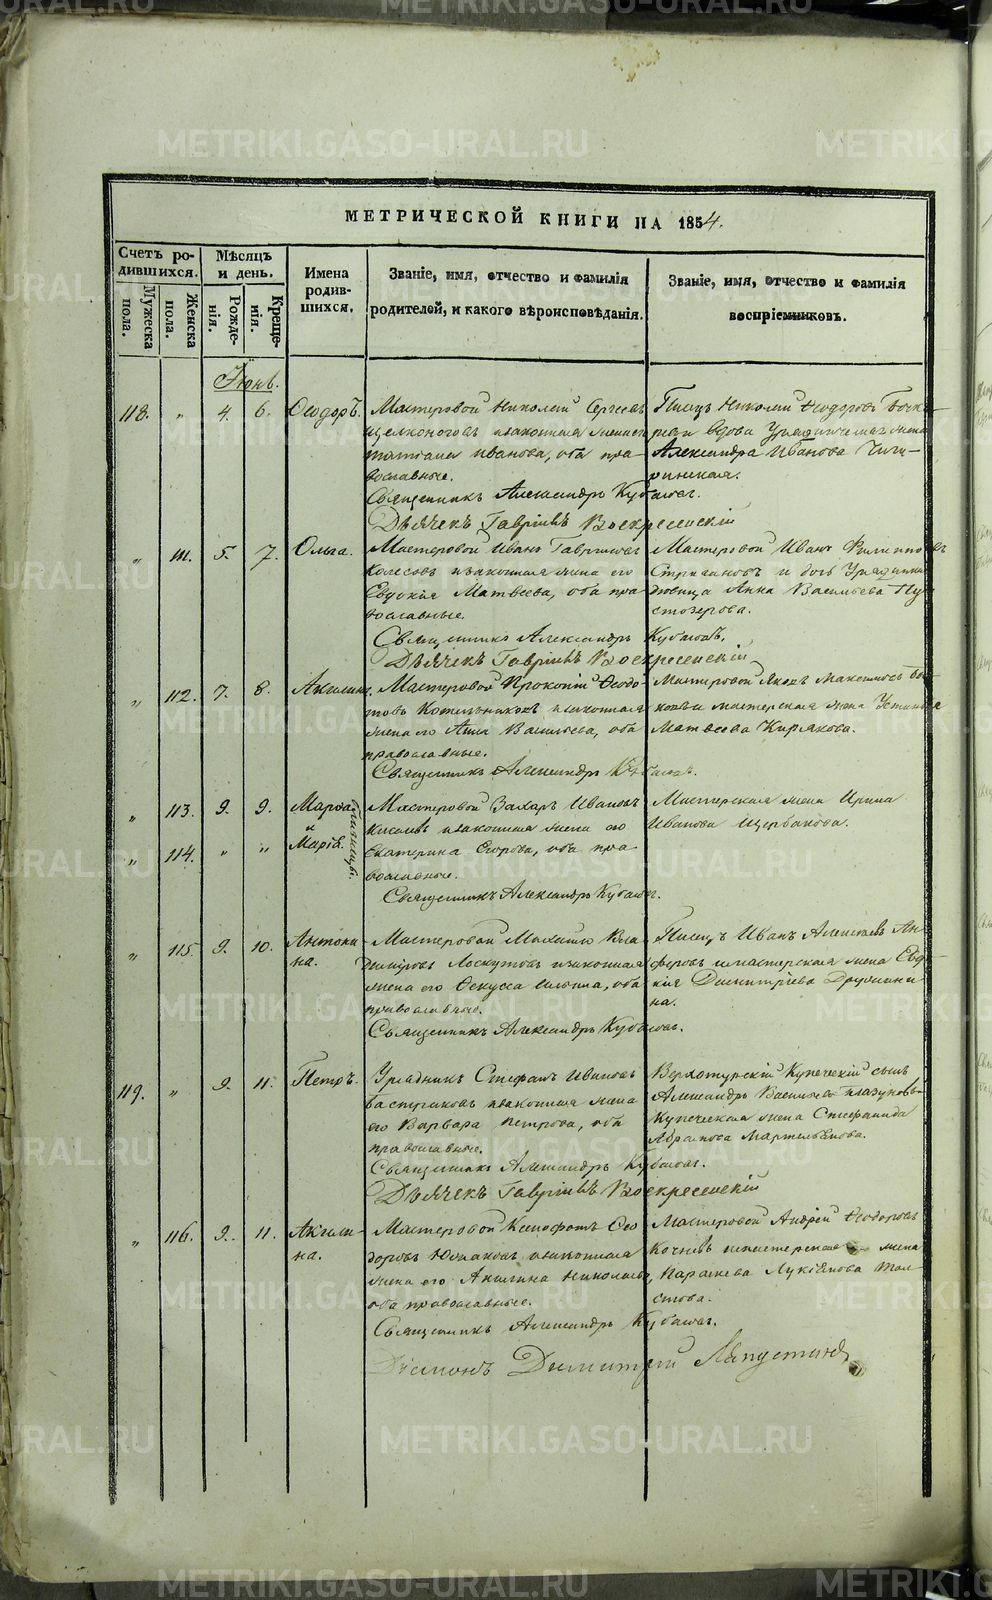 МЕТРИЧЕСКОЙ КНИГИ НА 1854.
Счетъ родившихся.
Мужеска пола.
Женска пола.
Мѣсяцъ и день.
Рожденія.
Крещенія.
Имена родившихся.
Званіе, имя, отчество и фамилія родителей, и какого вѣроисповѣданія.
Званіе, имя, отчество и фамилія воспріемниковъ.
Іюнь.
118. " 4. 6. Ѳеодоръ.
Мастеровой Николай Сергѣевъ
Щелконоговъ и законная жена его
Татіана Иванова, оба пра-
вославные.
Писецъ Николай Ѳеодоровъ
и вдова Урядничья жена
Александра Иванова Чигу-
ринская.
Священникъ Александръ Кубасовъ.
Дьячекъ Гавріилъ Воскресенскій
" 111. 5. 7. Ольга.
Мастеровой Иванъ Гавриловъ
Колесовъ и законная жена его
Евдокія Матвѣева, оба пра-
вославные.
Мастеровой Иванъ Филипповъ
Стригановъ и дочь Урядника
дѣвица Анна Васильева Пу-
стозерова.
Священникъ Александръ Кубасовъ.
Дьячекъ Гавріилъ Воскресенскій
" 112. 7. 8. Акилина.
Мастеровой Прокопій Ѳеодо-
товъ Котельниковъ и законная
жена его Анна Васильева, оба
православные.
Мастеровой Яковъ Максимовъ
и мастерская жена Устинья
Матвѣева Кирякова.
Священникъ Александръ Кубасовъ.
" 113. 9. 9. Марѳа
и
" 114. " " Марія.
близнецы.
Мастеровой Захаръ Ивановъ
Киселевъ и законная жена его
Екатерина Егорова, оба пра-
вославные.
Мастерская жена Ирина
Иванова Щербакова.
Священникъ Александръ Кубасовъ.
" 115. 9. 10. Антони
на.
Мастеровой Михаилъ Вла-
диміровъ Лоскутовъ и законная
жена его Ѳекусса Ильина, оба
православные.
Писецъ Иванъ Алексѣевъ Ан-
феровъ и мастерская жена Евдо-
кія Димитріева Дружини
на.
Священникъ Александръ Кубасовъ.
119. " 9. 11. Петръ.
Урядникъ Стефанъ Ивановъ
Пастуховъ и законная жена
его Варвара Петрова, оба
православные.
Верхотурскій Купеческій сынъ
Александръ Васильевъ Глазуновъ
Купеческая жена Стефанида
Абрамова Мартьянова.
Священникъ Александръ Кубасовъ.
Дьячекъ Гавріилъ Воскресенскій
" 116. 9. 11. Акили-
на.
Мастеровой Ксенофонтъ Ѳео
доровъ Южаковъ и законная
жена его Акилина Николаева,
оба православные.
Мастеровой Андрей Ѳеодоровъ
Кочневъ и мастерская жена
Параскева Лукіянова Тол
стова.
Священникъ Александръ Кубасовъ.
Діаконъ Димитрій Лапустинъ
METRIKI.GASO-URAL.RU